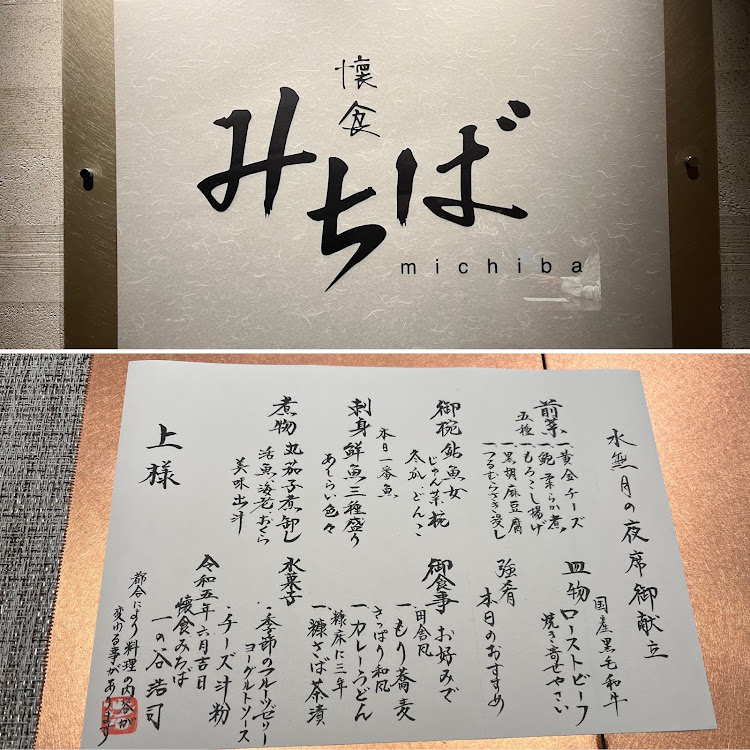 懐食
みちば
michiba
水無月の夜席御献立
前菜
五種
一、黄金チーズ
一、鮑柔らか煮
一、もろこし揚げ
一、黒胡麻豆腐
一、つるむらさき浸し
御椀 鮎魚女
じゅん菜
冬瓜 どんこ
本日一番魚
刺身 鮮魚三種盛り
あしらい色々
煮物 丸茄子煮卸し
活魚 海老 おくら
美味出汁
国産黒毛和牛
皿物 ローストビーフ
焼き寄せやさい
強肴 本日のおすすめ
御食事 お好みで
・田舎風
一、もり蕎麦
さっぱり和風
一、カレーうどん
糠床に三年
一、糠さば茶漬
水菓子
・季節のフルーツゼリー
ヨーグルトソース
・チーズ汁粉
令和五年六月吉日
懐食みちば
一の谷浩司
都合により料理の内容が
変わる事があります
上様